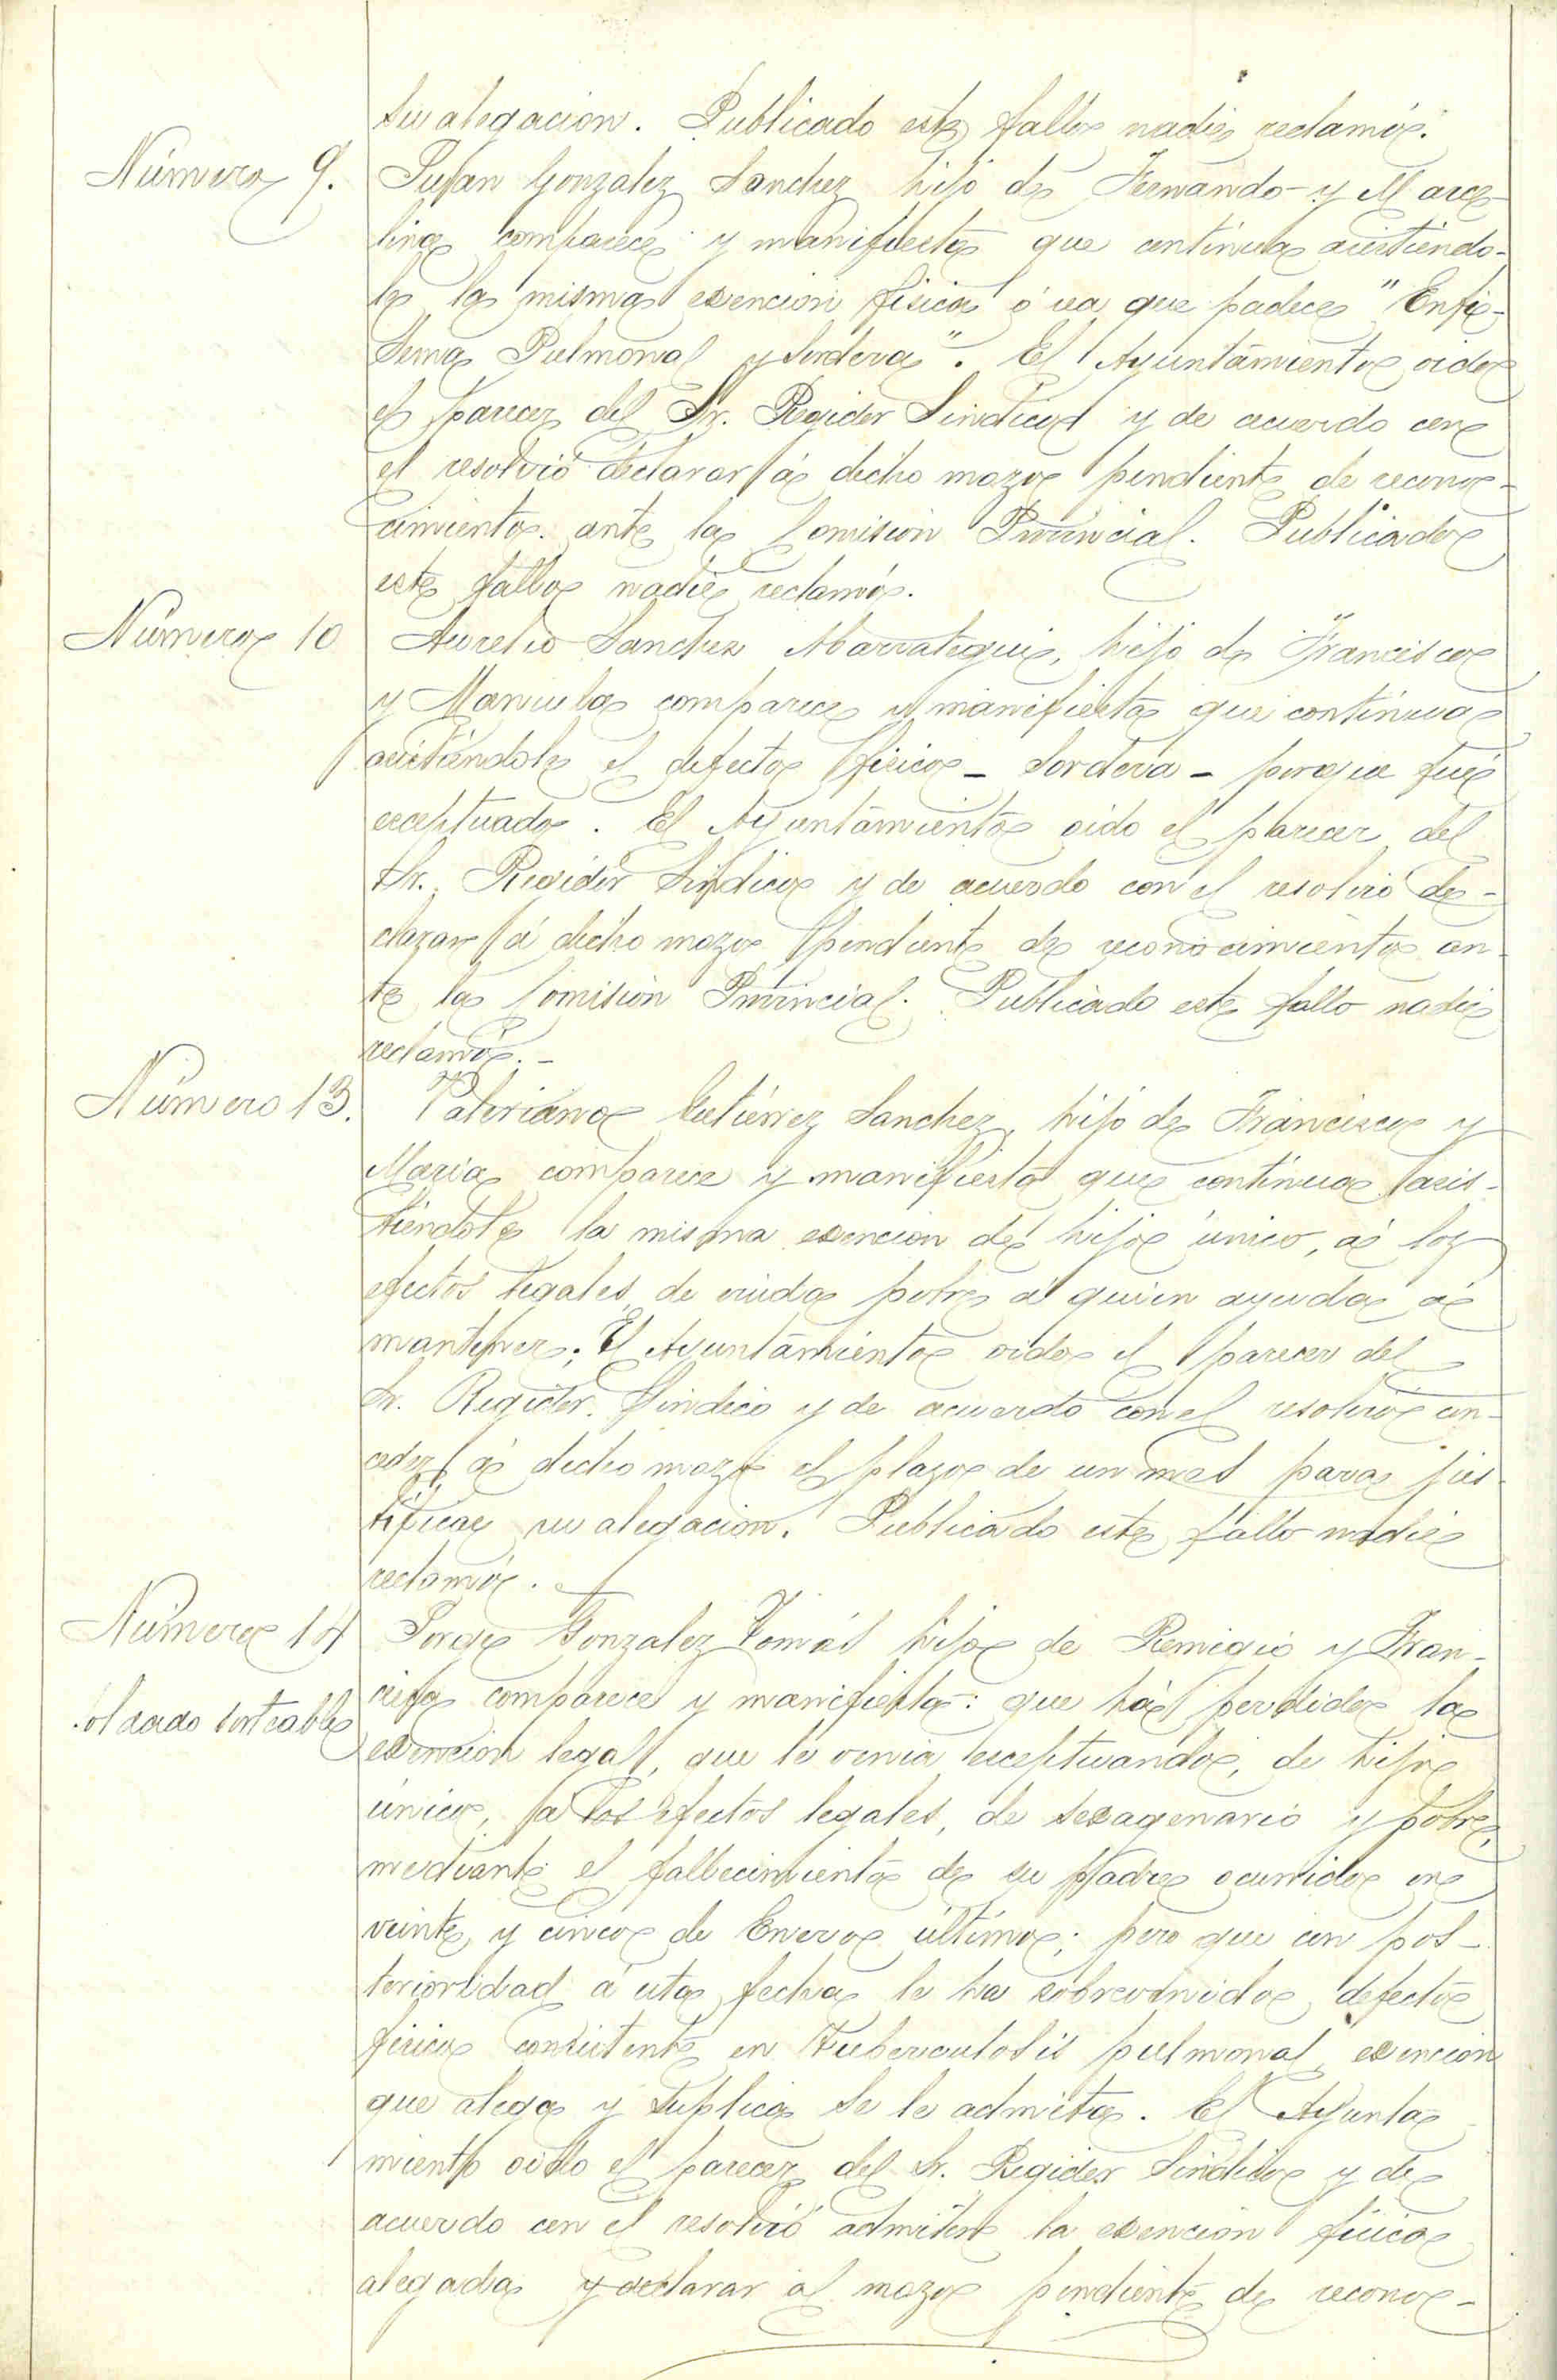 su alegacion. Publicado este fallo nadie reclamó.
Número 9.
Julian Gonzalez Sanchez hijo de Fernando y Marce-
lina comparece y manifiesta que continua asistiendo-
le la misma exención fisica ó sea que padece "Enfi-
sema Pulmonal y Sordera". El Ayuntamiento oido
el parecer del Sr. Regidor Sindico y de acuerdo con
el resolvió declarar á dicho mozo pendiente de recono-
cimiento ante la Comisión Provincial. Publicado
este fallo nadie reclamó.
Número 10
Aurelio Sanchez Marrategui, hijo de Francisco
y Manuela comparece y manifiesta que continua
asistiéndole el defecto fisico - Sordera - porque fué
exceptuado. El Ayuntamiento oido el parecer del
Sr. Regidor Sindico y de acuerdo con el resolvió de-
clarar á dicho mozo pendiente de reconocimiento an-
te la Comisión Provincial. Publicado este fallo nadie
reclamó. -
Número 13.
Valeriano Gutiérrez Sanchez, hijo de Francisco y
Maria comparece y manifiesta que continua asis-
tiéndole la misma exencion de hijo único, á los
efectos legales, de viuda pobre á quien ayuda á
mantener; El Ayuntamiento oido el parecer del
Sr. Regidor Sindico y de acuerdo con el resolvió con-
ceder á dicho mozo el plazo de un mes para jus-
tificar su alegacion. Publicado este fallo nadie
reclamó.
Número 14
Soldado sorteable
Jorge Gonzalez Tomás hijo de Remigio y Fran-
cisca comparece y manifiesta: que há perdido la
exención legal, que le venia exceptuando, de hijo
único, á los efectos legales, de sexagenario y pobre,
mediante el fallecimiento de su padre ocurrido en
veinte y cinco de Enero último; pero que con pos-
terioridad á esta fecha le ha sobrevenido defecto
fisico consistente en Tuberculosis pulmonal, exencion
que alega y suplica se le admita. El Ayunta
miento oido el parecer del Sr. Regidor Sindico y de
acuerdo con el resolvió admitir la exención fisica
alegada y declarar al mozo pendiente de recono-